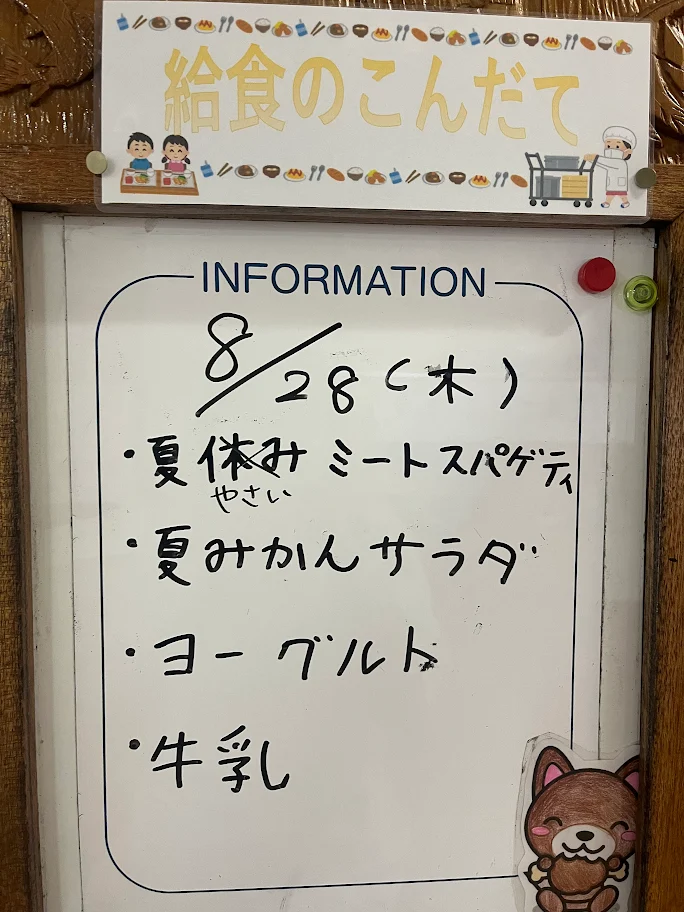 給食のこんだて
INFORMATION
8/28(木)
・夏休み ミートスパゲティ
やさい
・夏みかんサラダ
・ヨーグルト
・牛乳